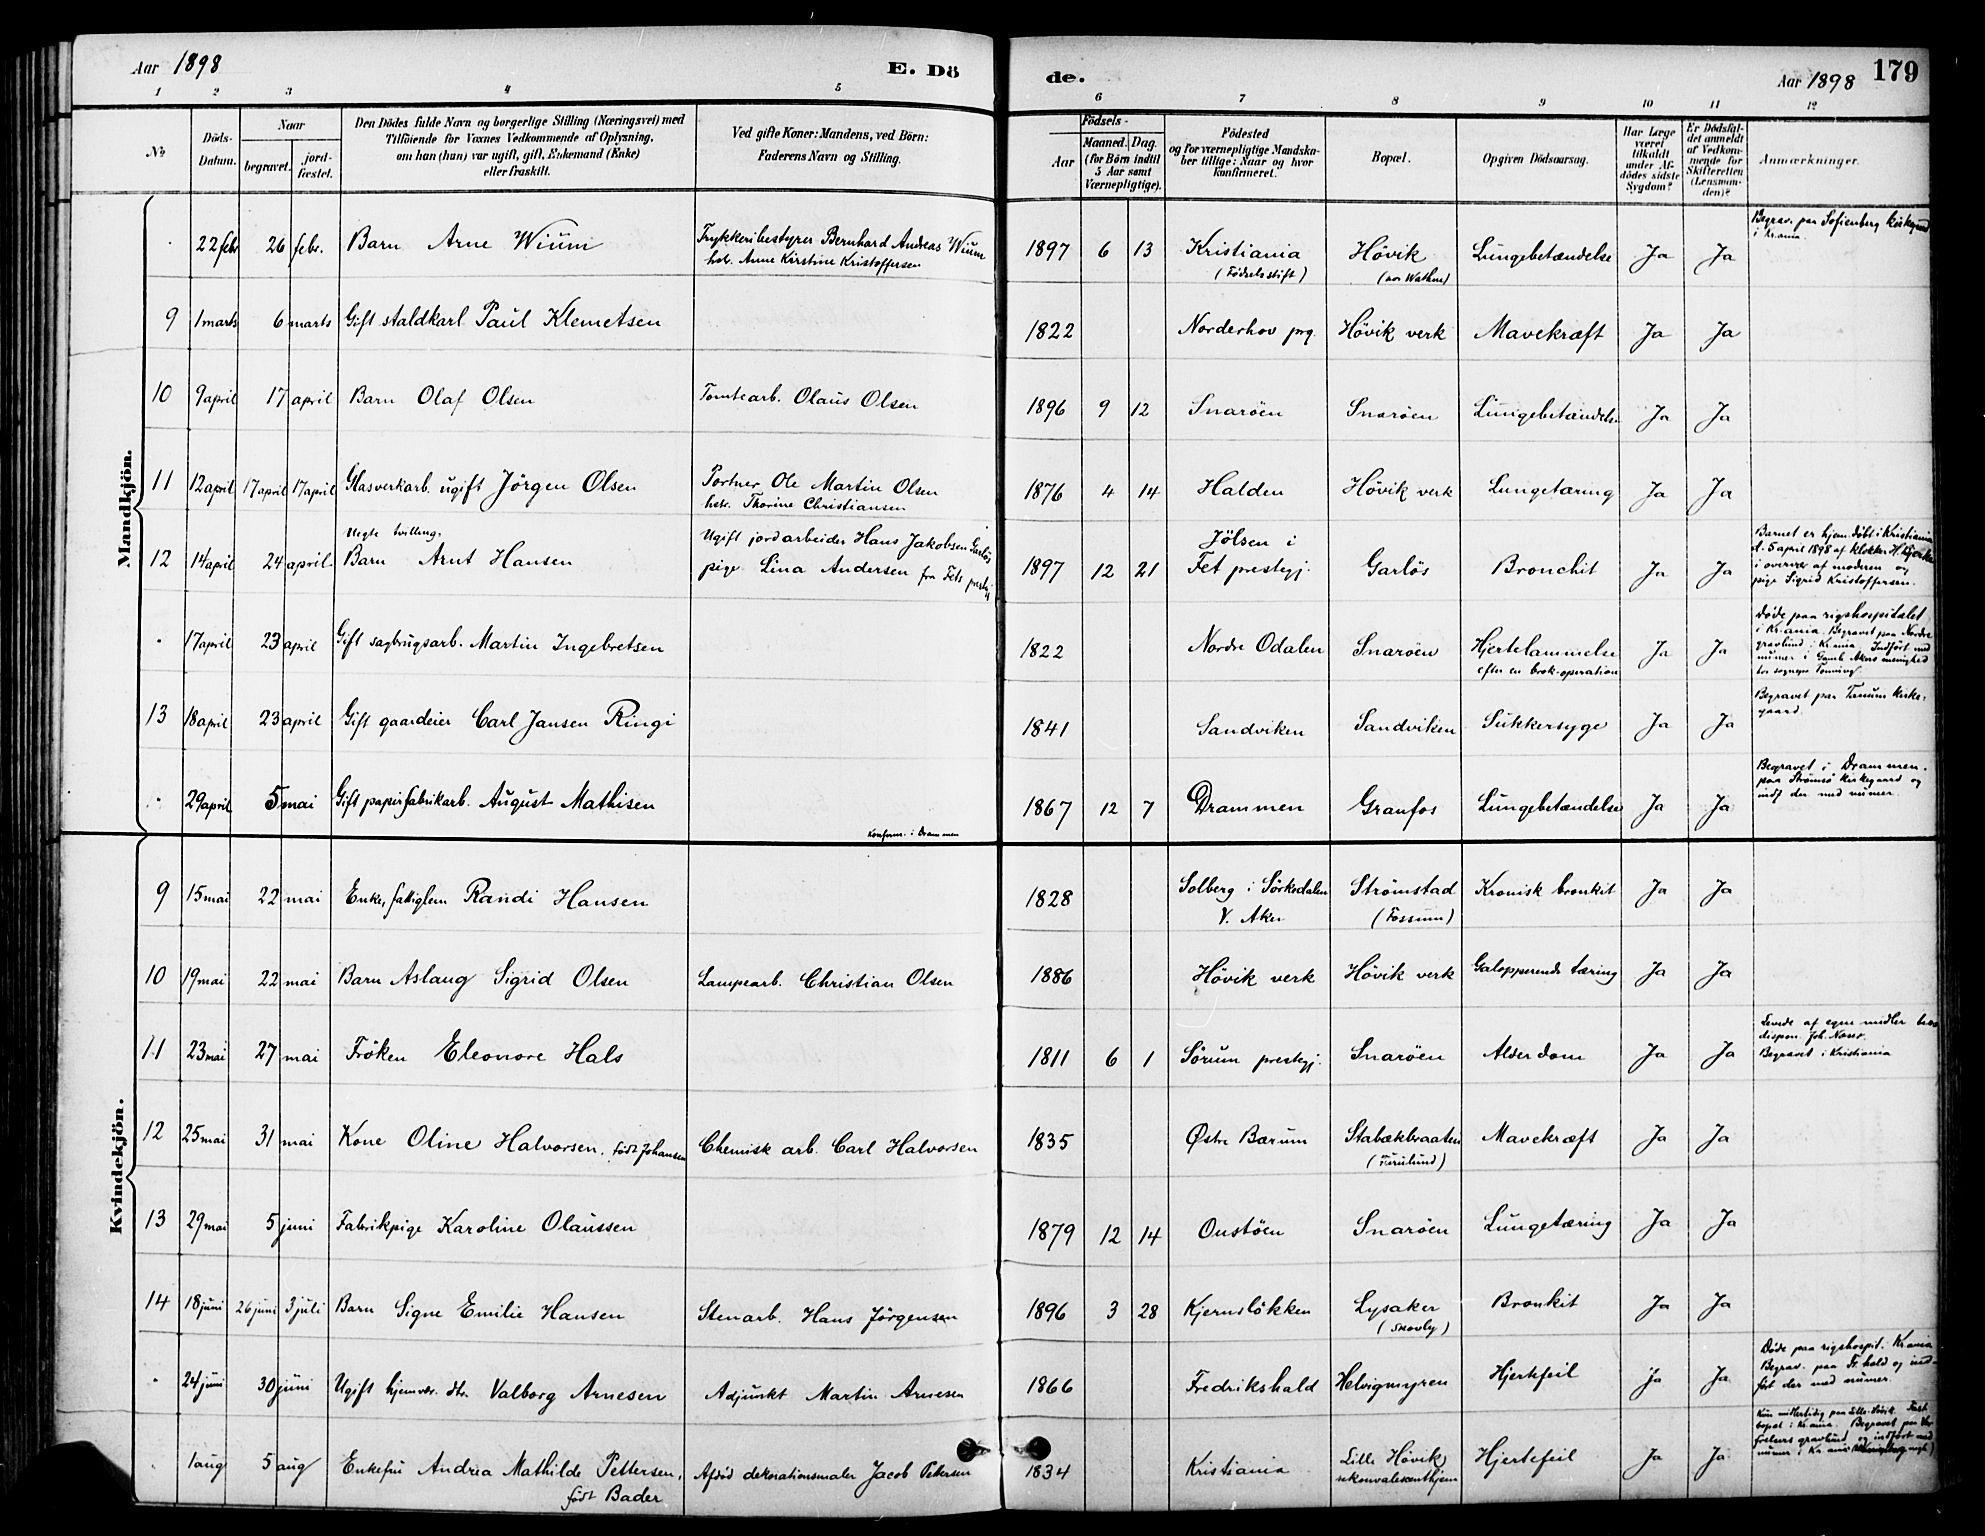 Aar 1898 E. Dö de. Aar 1898 179
1 2 3 4 5 6 7 8 9 10 11 12
No Döds-Datum. Naar begravet. jord-fæstet. Den Dödes fulde Navn og borgerlige Stilling (Næringsvei) med Tilföiende for Voxnes Vedkommende af Oplysning, om han (hun) var ugift, gift, Enkemand (Enke) eller fraskilt. Ved gifte Koner: Mandens, ved Börn: Faderens Navn og Stilling. Födsels- Aar Maaned. Dag. (for Börn indtil 5 Aar samt Værnepligtige). Födested og for værnepligtige Mandskaber tillige: Naar og hvor konfirmeret. Bopæl. Opgiven Dödsaarsag. Har Læge været tilkaldt under Afdödes sidste Sygdom? Er Dödsfaldet anmeldt af Vedkommende for Skifteretten (Lensmanden)? Anmærkninger.
Mandkjön.
22 febr 26 febr. Barn Arne Wium Trykkeribestyrer Bernhard Andreas Wium 1897 6 13 Kristiania Hövik Lungebetændelse Ja Ja Begrav. paa Sofienberg kirkegaard
hstr. Anne Kirstine Kristoffersen (Födselsstift) (hos Wathne) i Kr.ania.
9 1 marts 6 marts Gift staldkarl Paul Klemetsen 1822 Norderhov prg. Hövik verk Mavekræft Ja Ja
10 9 april 17 april Barn Olaf Olsen Tomtearb. Olaus Olsen 1896 9 12 Snaröen Snaröen Lungebetændelse Ja Ja
11 12 april 17 april 17 april Glasverkarb. ugift Jörgen Olsen Portner Ole Martin Olsen 1876 4 14 Halden Hövik verk Lungetæring Ja Ja
hstr. Thorine Christiansen
Uegte tvilling.
12 14 april 24 april Barn Arnt Hansen Ugift jordarbeider Hans Jakobsen Garlös 1897 12 21 Jölsen i Garlös Bronchit Ja Ja Barnet er hjem.döbt i Kristiania
pige Lina Andersen fra Fets prestgj. Fet prestegj. d. 5 april 1898 af klokker H.
i overvær af moderen og
pige Sigrid Kristoffersen.
17 april 23 april Gift sagbrugsarb. Martin Ingebretsen 1822 Nordre Odalen Snaröen Hjertelammelse Ja Ja Döde paa rigshospitalet
efter en brok-operation i Kr.ania. Begravet paa Nordre
gravlund i Kr.ania. Indfört med
numer i Gamle Akers menighed
13 18 april 23 april Gift gaardeier Carl Jansen Ringi 1841 Sandviken Sandviken Sukkersyge Ja Ja Begravet paa Tanum kirke-
gaard.
29 april 5 mai Gift papirfabrikarb. August Mathisen 1867 12 7 Drammen Granfos Lungebetændelse Ja Ja Begravet i Drammen.
Konfirm. i Drammen paa Strömsö kirkegaard og
indf. der med numer.
Kvindekjön.
9 15 mai 22 mai Enke, fattiglem Randi Hansen 1828 Solberg i Sörkedalen Strömstad Kronisk bronkit Ja Ja
V. Aker (Fossum)
10 19 mai 22 mai Barn Aslaug Sigrid Olsen Lampearb. Christian Olsen 1886 Hövik verk Hövik verk Galopperende tæring Ja Ja
11 23 mai 27 mai Fröken Eleonore Hals 1811 6 1 Sörum prestegj. Snaröen Alderdom Ja Ja Levede af egne midler hos
dispon. Joh.
Begravet i Kristiania
12 25 mai 31 mai Kone Oline Halvorsen, födt Johansen Chemisk arb. Carl Halvorsen 1835 Østre Bærum Stabækbraaten Mavekræft Ja Ja
(Furulund)
13 29 mai 5 juni Fabrikpige Karoline Olaussen 1879 12 14 Oustöen Snaröen Lungetæring Ja Ja
14 18 juni 26 juni 3 juli Barn Signe Emilie Hansen Stenarb. Hans Jörgensen 1896 3 28 Kjernslökken Lysaker Bronkit Ja Ja
(Snovly)
24 juni 30 juni Ugift hjemvær. dtr. Valborg Arnesen Adjunkt Martin Arnesen 1866 Fredrikshald Helvigmyren Hjertefeil Ja Ja Döde paa rigshospit. Kr.ania
Begrav. paa Fr.hald og ind-
fört der med numer.
1 aug 5 aug Enkefru Andrea Mathilde Pettersen, Afdöd dekorationsmaler Jacob Petersen 1834 Kristiania Lille Hövik Hjertefeil Ja Ja Kun midlertidig paa Lille Hövik. Fast
födt Bader rekonvalescenthjem bopæl i Kr.ania. Begravet paa Vor
frelsers gravlund og indfört med
numer i Kr.ania